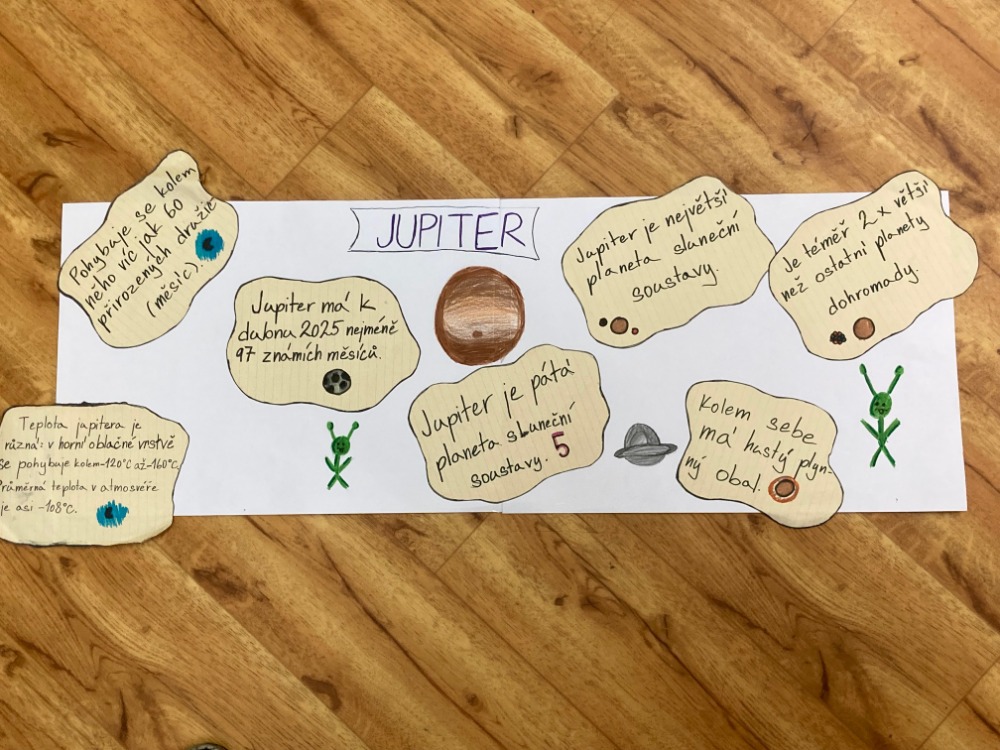 JUPITER
Pohybuje se kolem
něho víc jak 60
přirozených družic
(měsíc).
Jupiter má k
dubnu 2025 nejméně
97 známích měsíců.
Jupiter je největší
planeta sluneční
soustavy.
Je téměř 2x větší
než ostatní planety
dohromady.
Teplota jupitera je
různá: v horní oblačné vrstvě
se pohybuje kolem -120°C až -160°C.
Průměrná teplota v atmosvéře
je asi -108°C.
Jupiter je pátá
planeta sluneční
soustavy. 5
Kolem sebe
má hustý plyn-
ný obal.